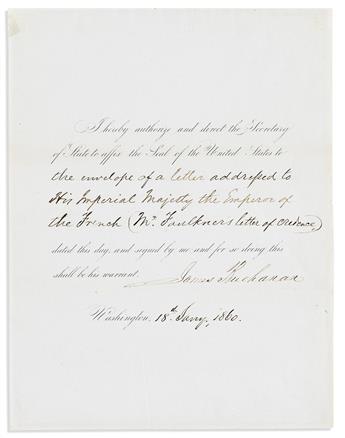 I hereby authorize and direct the Secretary
of State to affix the Seal of the United States to
the envelope of a letter addressed to
His Imperial Majesty the Emperor of
the French (Mr. Faulkner's letter of credence)
dated this day, and signed by me and for so doing this
shall be his warrant.
James Buchanan
Washington, 18th Jany, 1860.